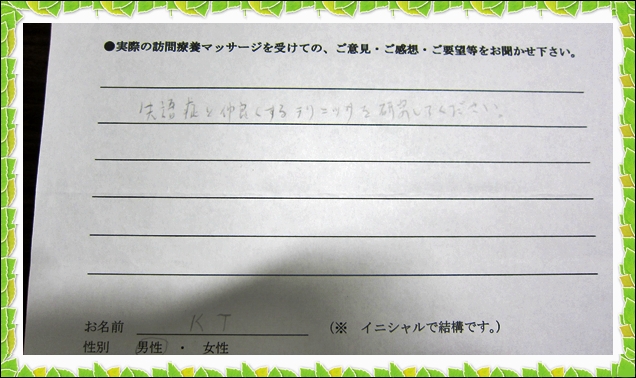 ●実際の訪問療養マッサージを受けての、ご意見・ご感想・ご要望等をお聞かせ下さい。
失語症と仲良くするテクニックを研究してください。
お名前 KT (※ イニシャルで結構です。)
性別 男性 ・ 女性